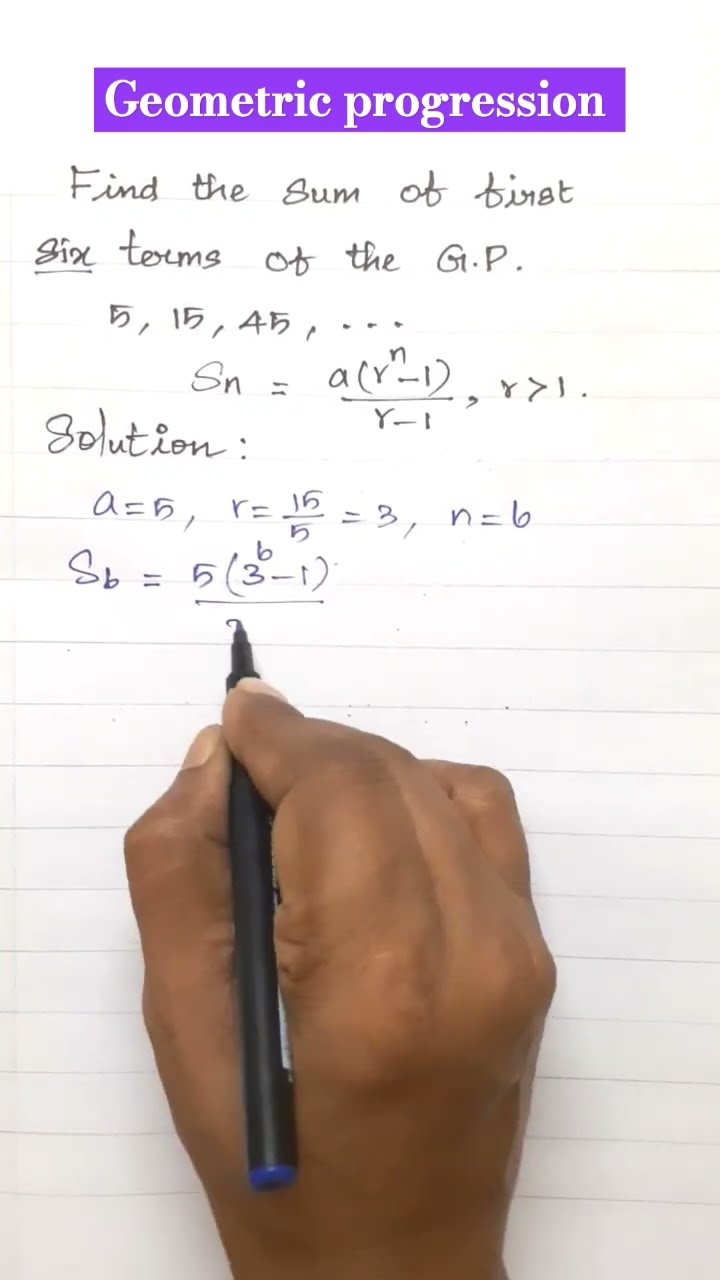 Geometric progression
Find the sum of first
six terms of the G.P.
5, 15, 45, ...
Sn = a(r^n-1)/r-1, r>1.
Solution:
a=5, r=15/5=3, n=6
S6 = 5(3^6-1)/